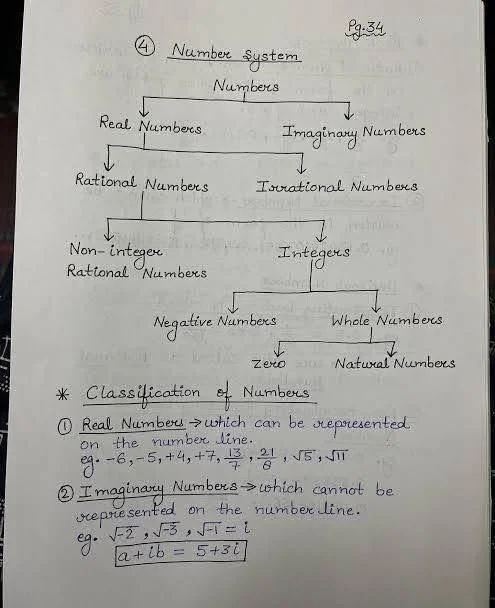 Pg.34
④ Number System
Numbers
Real Numbers Imaginary Numbers
Rational Numbers Irrational Numbers
Non-integer Integers
Rational Numbers
Negative Numbers Whole Numbers
Zero Natural Numbers
* Classification of Numbers
① Real Numbers → which can be represented
on the number line.
eg. -6, -5, +4, +7, 13/7, 21/8, √5, √11
② Imaginary Numbers → which cannot be
represented on the number line.
eg. √-2, √-3, √-1 = i
a+ib = 5+3i